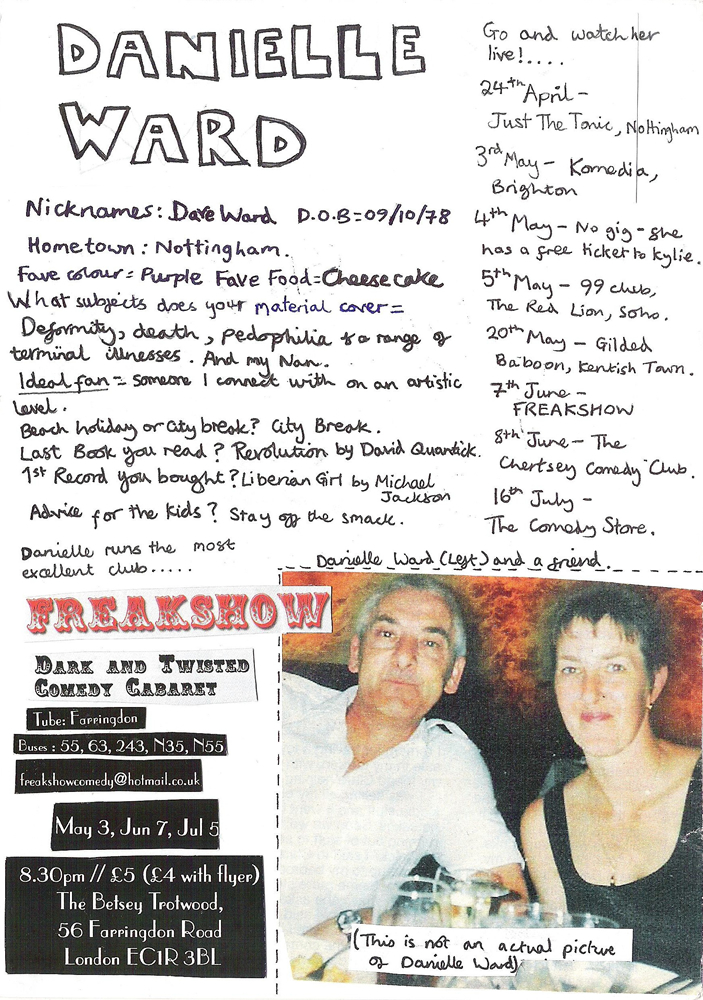 DANIELLE
WARD
Nicknames: Dave Ward D.O.B=09/10/78
Hometown: Nottingham.
Fave colour= Purple Fave Food=Cheesecake
What subjects does your material cover=
Deformity, death, pedophilia & a range of
terminal illnesses. And my Nan.
Ideal fan= someone I connect with on an artistic
level.
Beach holiday or city break? City Break.
Last Book you read? Revolution by David Quantick.
1st Record you bought? Liberian Girl by Michael
Jackson
Advice for the kids? Stay off the smack.
Danielle runs the most
excellent club.....
FREAKSHOW
DARK AND TWISTED
COMEDY CABARET
Tube: Farringdon
Buses: 55, 63, 243, N35, N55
freakshowcomedy@hotmail.co.uk
May 3, Jun 7, Jul 5
8.30pm // £5 (£4 with flyer)
The Betsey Trotwood,
56 Farringdon Road
London EC1R 3BL
Go and watch her
live!....
24th April -
Just The Tonic, Nottingham
3rd May - Komedia,
Brighton
4th May - No gig - she
has a free ticket to Kylie.
5th May - 99 club,
The Red Lion, Soho.
20th May - Gilded
Baboon, Kentish Town.
7th June -
FREAKSHOW
8th June - The
Chertsey Comedy Club.
16th July -
The Comedy Store.
Danielle Ward (Left) and a friend.
(This is not an actual picture
of Danielle Ward)